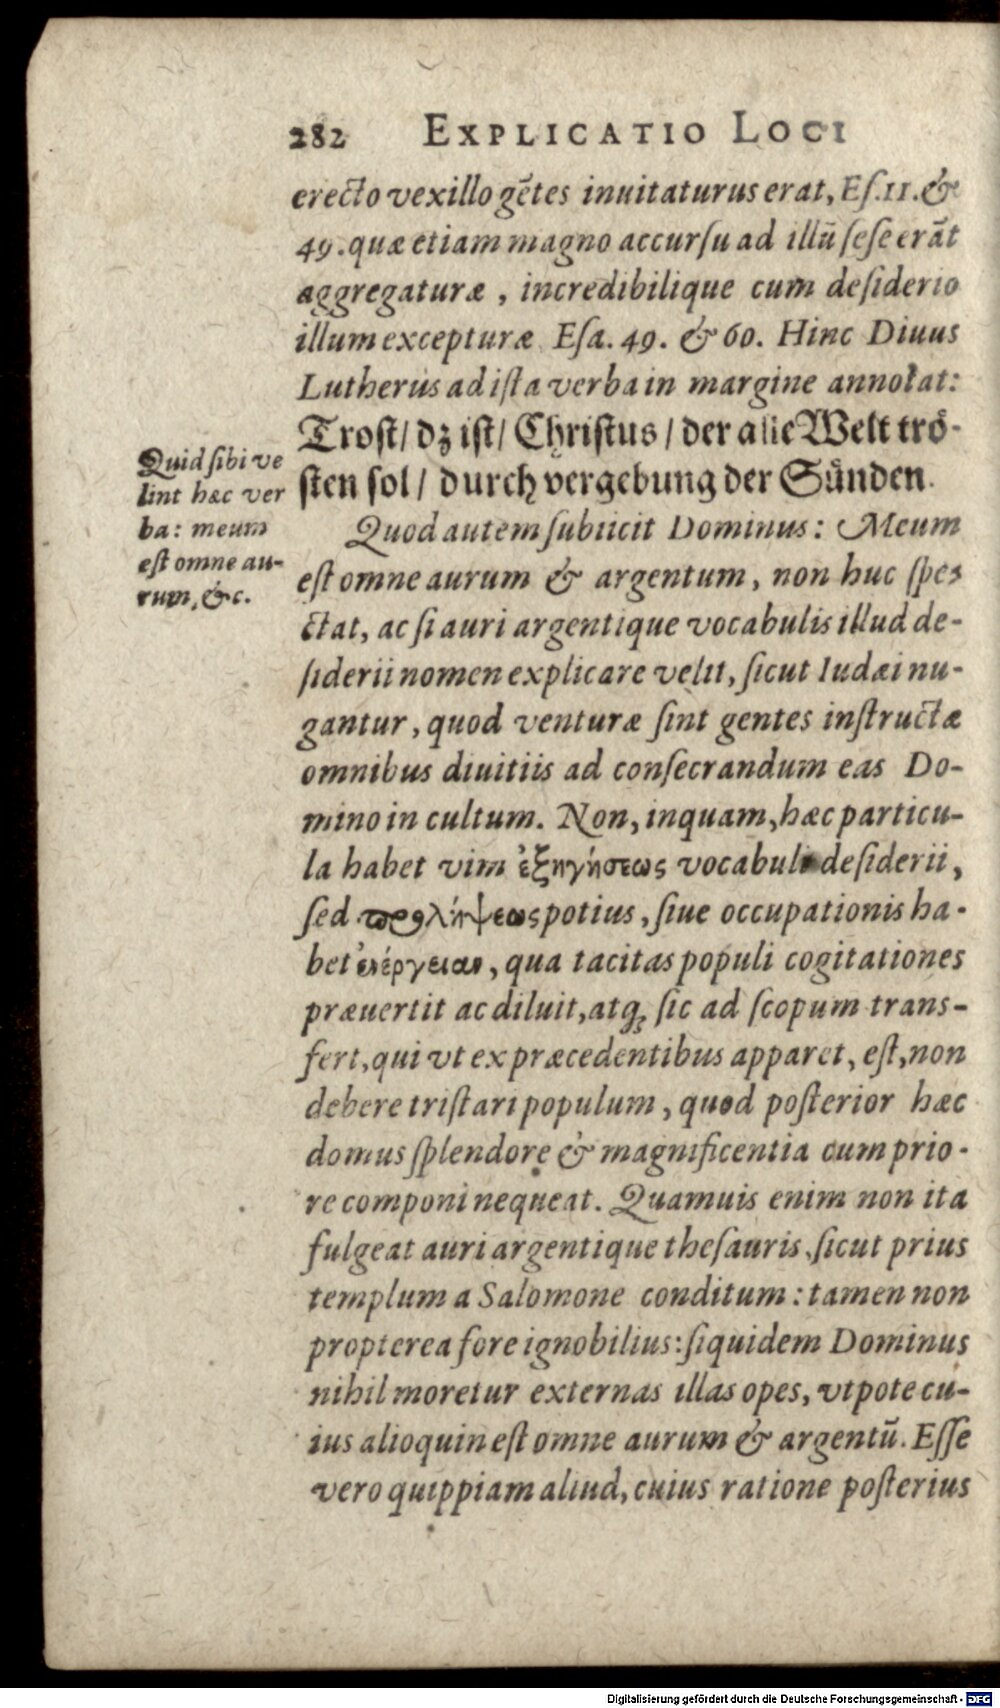 282 EXPLICATIO LOCI
erecto vexillo gẽtes inuitaturus erat, Eſ.11.&
49. quæ etiam magno accurſu ad illũ ſeſe erãt
aggregaturæ, incredibilique cum deſiderio
illum excepturæ Eſa. 49. & 60. Hinc Diuus
Lutherus ad iſta verba in margine annotat:
Troſt/ dz iſt/ Chriſtus / der alle Welt trö-
ſten ſol / durch vergebung der Sünden.
Quod autem ſubiicit Dominus: Meum
eſt omne aurum & argentum, non huc ſpe-
ctat, ac ſi auri argentique vocabulis illud de-
ſiderii nomen explicare velit, ſicut Iudæi nu-
gantur, quod venturæ ſint gentes inſtructæ
omnibus diuitiis ad conſecrandum eas Do-
mino in cultum. Non, inquam, hæc particu-
la habet vim ἐξηγήσεως vocabuli deſiderii,
ſed προλήψεως potius, ſiue occupationis ha-
bet ἐνέργειαν, qua tacitas populi cogitationes
præuertit ac diluit, atq; ſic ad ſcopum trans-
fert, qui vt ex præcedentibus apparet, eſt, non
debere triſtari populum, quod poſterior hæc
domus ſplendore & magnificentia cum prio-
re componi nequeat. Quamuis enim non ita
fulgeat auri argentique theſauris, ſicut prius
templum a Salomone conditum: tamen non
propterea fore ignobilius: ſiquidem Dominus
nihil moretur externas illas opes, vtpote cu-
ius alioquin eſt omne aurum & argentũ. Eſſe
vero quippiam aliud, cuius ratione poſterius
Quid ſibi ve
lint hæc ver
ba: meum
eſt omne au-
rum, &c.
Digitalisierung gefördert durch die Deutsche Forschungsgemeinschaft - DFG